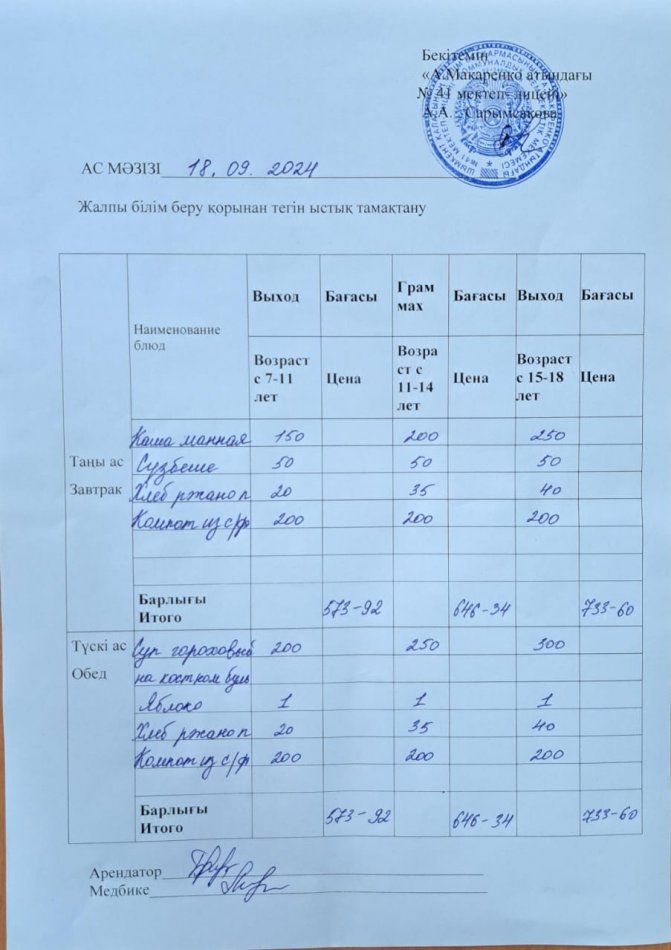 Бекітемін
«А.Макаренко атындағы
№ 41 мектеп- лицей»
А.А. Сарымсакова
АС МӘЗІЗІ 18. 09. 2024
Жалпы білім беру қорынан тегін ыстық тамақтану
Наименование блюд Выход Бағасы Грам мах Бағасы Выход Бағасы
Возраст с 7-11 лет Цена Возра ст с 11-14 лет Цена Возраст с 15-18 лет Цена
Каша манная 150 200 250
Таңы ас Сузбеше 50 50 50
Завтрак Хлеб ржано п 20 35 40
Компот из с/ф 200 200 200
Барлығы
Итого 573-92 646-34 733-60
Түскі ас Суп гороховый 200 250 300
Обед на костном буль
Яблоко 1 1 1
Хлеб ржано п 20 35 40
Компот из с/ф 200 200 200
Барлығы
Итого 573-92 646-34 733-60
Арендатор
Медбике